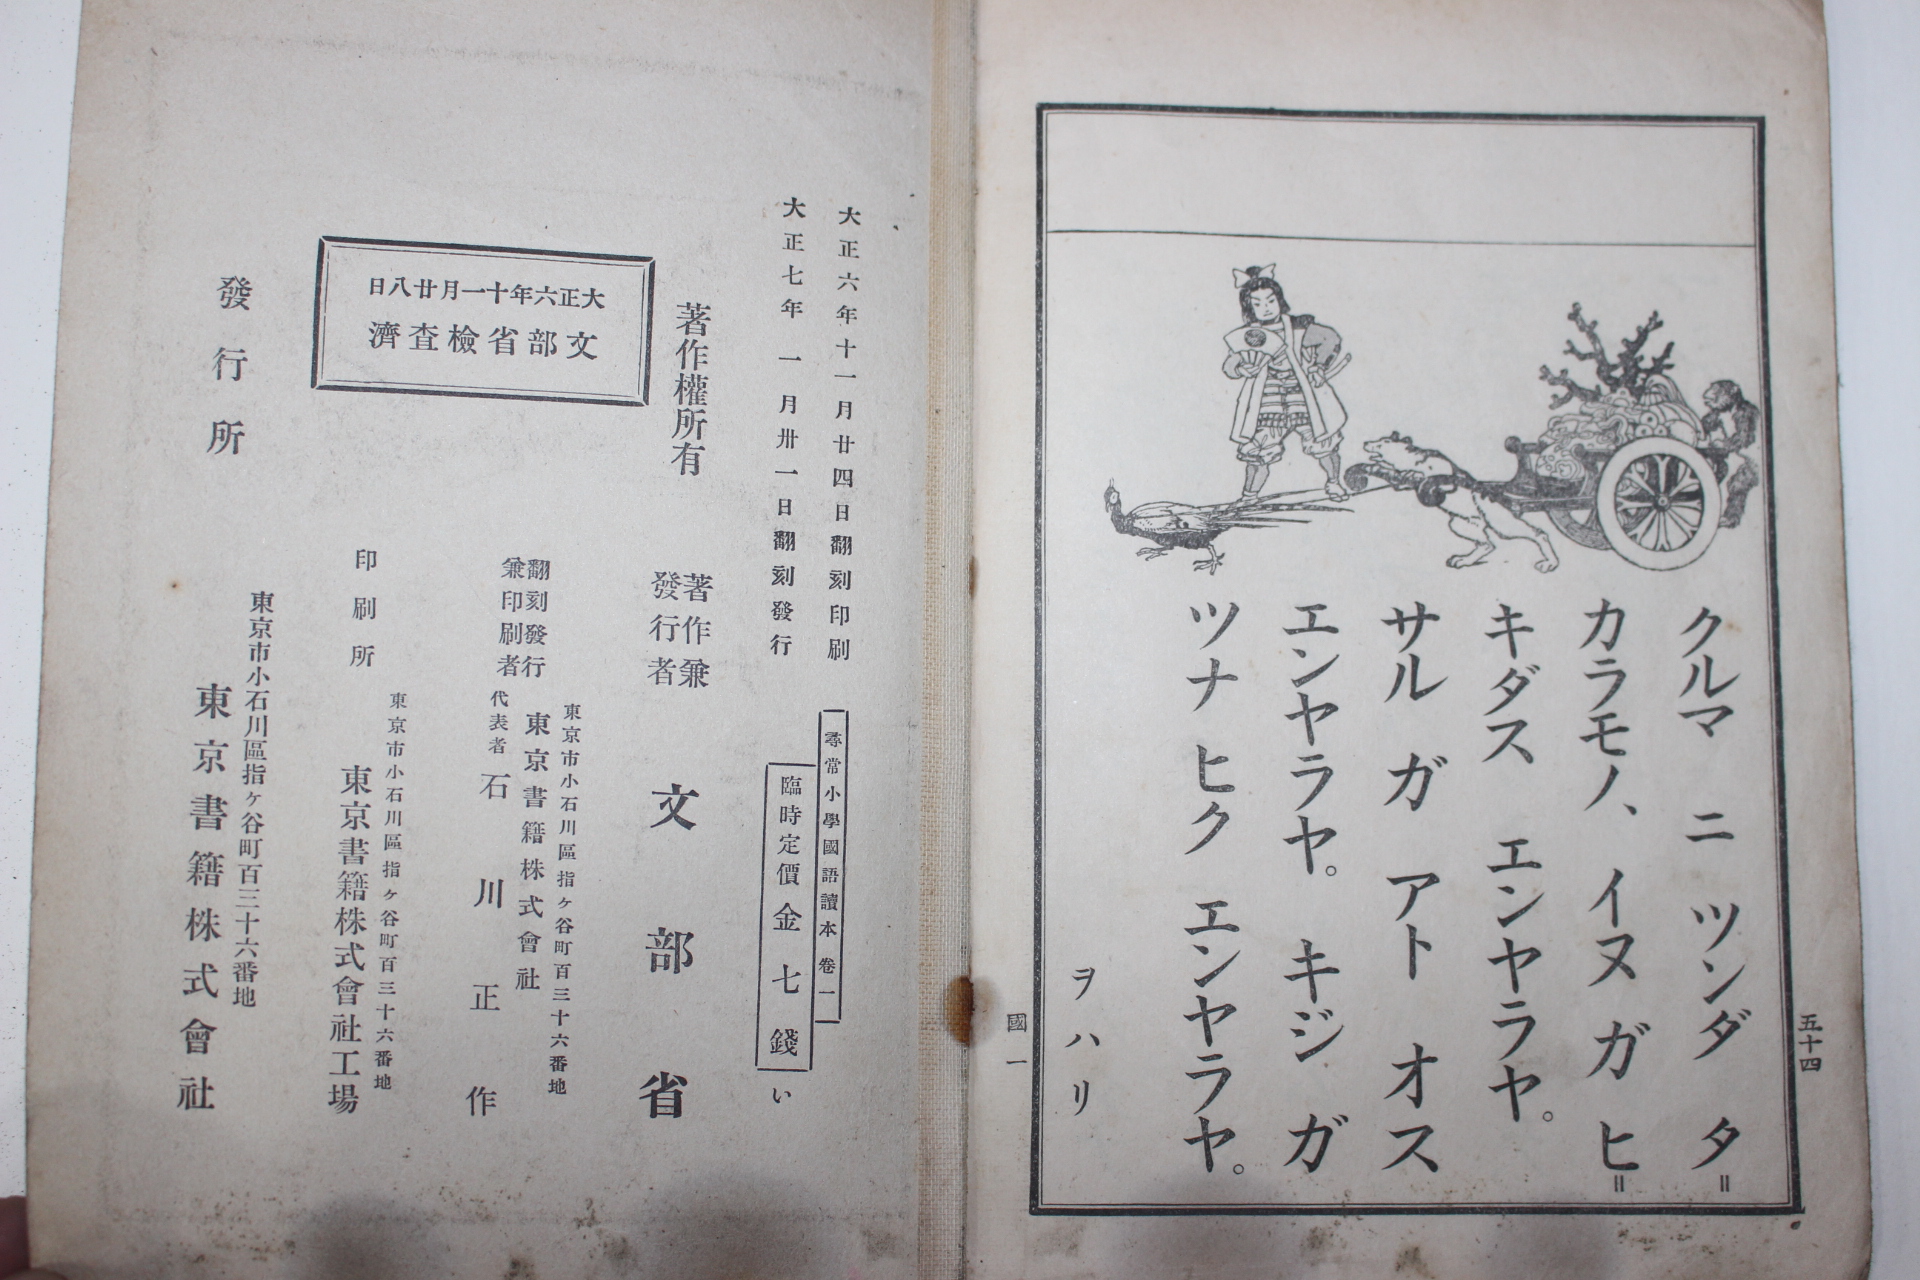 五十四
クルマ ニ ツンダ タ=
カラモノ、イヌ ガ ヒ=
キダス エンヤラヤ。
サル ガ アト オス
エンヤラヤ。 キジ ガ
ツナ ヒク エンヤラヤ。
ヲハリ
國一
大正六年十一月廿四日翻刻印刷
大正七年一月卅一日翻刻發行
尋常小學國語讀本 卷一
臨時定價金七錢
い
著作權所有
著作兼
發行者
文部省
大正六年十一月廿八日
文部省檢査濟
翻刻發行
兼印刷者
東京市小石川區指ヶ谷町百三十六番地
東京書籍株式會社
代表者 石川正作
印刷所
東京市小石川區指ヶ谷町百三十六番地
東京書籍株式會社工場
發行所
東京市小石川區指ヶ谷町百三十六番地
東京書籍株式會社